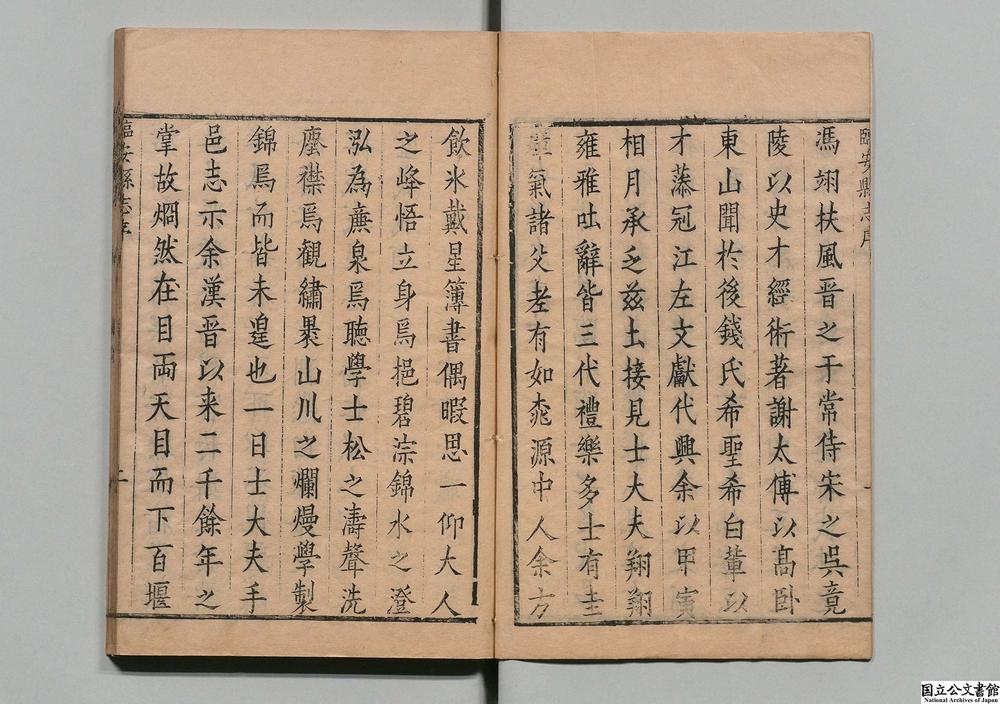 臨安縣志序
馮翊扶風晉之于常侍宋之吳竟
陵以史才經術著謝太傅以高卧
東山聞於後錢氏希聖希白輩以
才藻冠江左文獻代興余以甲寅
相月承乏茲土接見士大夫翔翔
雍雅吐辭皆三代禮樂多士有圭
璋氣諸父老有如桃源中人余方
飲氷戴星簿書偶暇思一仰大人
之峰悟立身焉挹碧淙錦水之澄
泓為廉泉焉聴學士松之濤聲洗
塵襟焉觀繡㬥山川之爛熳學製
錦焉而皆未遑也一日士大夫手
邑志示余漢晉以来二千餘年之
掌故烱然在目両天目而下百堰
臨安縣志序
二
国立公文書館
National Archives of Japan